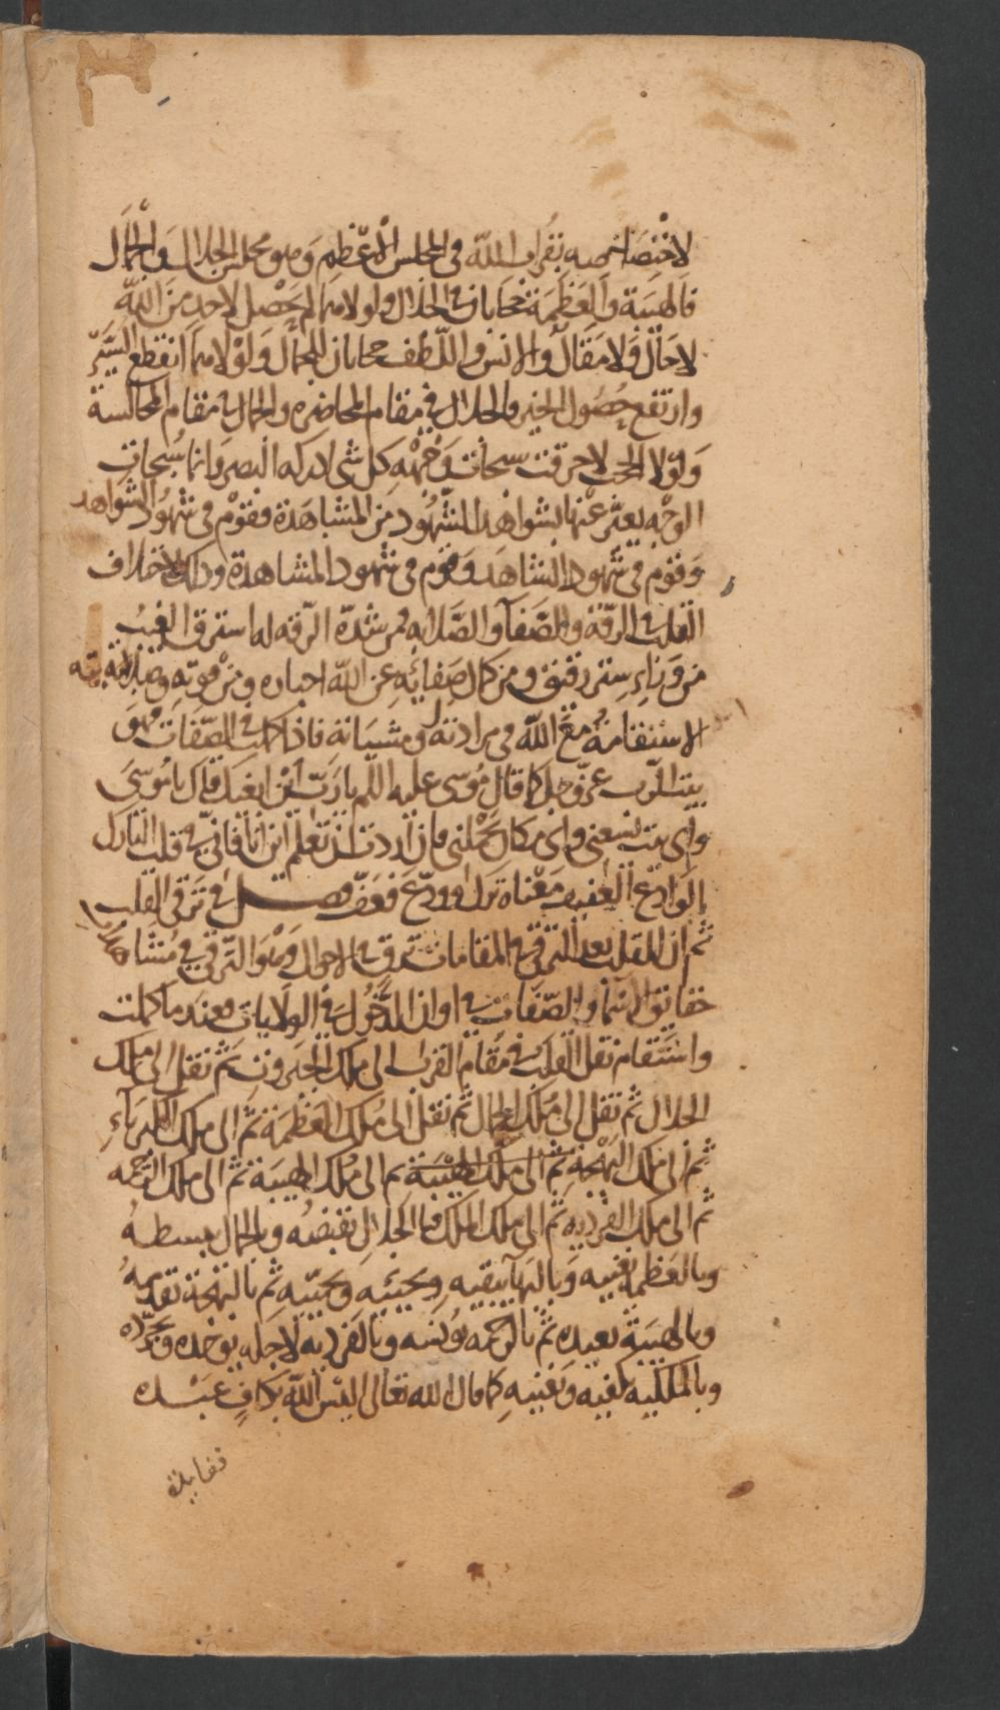 لاختصاصه بقرب الله في المجلس الأعظم وهو مجلس الجلال والجمال
فالهيبة والعظمة حجابان في الجلال ولولاهما لم يحصل لاحد من الله
لا حال ولا مقال والانس واللطف حجابان للجمال ولولاهما انقطع السير
وارتفع حصول الخير والجلال في مقام المحاضره والجمال في مقام المجالسة
ولولا الحجب لاحرقت سبحات وجهه كل شي ادركه البصر وانما سبحات
الوجه يعبر عنها بشواهد الشهود من المشاهدة فقوم في شهود الشواهد
وقوم في شهود الشاهد وقوم في شهود المشاهدة وذلك لاختلاف
القلب في الرقة والصفا والصلابه فمن شدة الرقه له استرق الغيب
من وراء ستر رقيق ومن كمال صفائه عن الله اخباره ومن قوته وصلابته
الاستقامة مع الله في مرادته ومشيئاته فاذا كملت الصفات فهو
بيت الرب عز وجل كما قال موسى عليه السلم يا رب أين ابغيك قال يا موسى
واي بيت يسعني واي مكان يحملني فان اردت ان تعلم اين انا فاني في قلب التارك
الوادع العفيف معناه ترك وودع فعف فصل في ترقي القلب
ثم ان للقلب بعد الترقي في المقامات ترق في الاحوال وهو الترقي في مشاهدة
حقائق الاسماء والصفات في اوان الدخول في الولايات فعند ما كملت
واستقام نقل القلب في مقام القرب الى ملك الجبروت ثم نقل الى ملك
الجلال ثم نقل الى ملك الجمال ثم نقل الى ملك العظمة ثم الى ملك الكبرياء
ثم الى ملك البهجة ثم الى ملك الهيبة ثم الى ملك الهيبة ثم الى ملك الرحمه
ثم الى ملك الفرديه ثم الى ملك الملك فبالجلال يقبضه وبالجمال يبسطه
وبالعظمة يفنيه وبالبهآ يبقيه ويحييه ويحييه ثم بالبهجة تقدمه
وبالهيبة يعيده ثم بالرحمه يؤنسه وبالفرديه لاجله يوحده ويجرده
وبالملكيه يكفيه ويغنيه كما قال الله تعالى اليس الله بكاف عبده